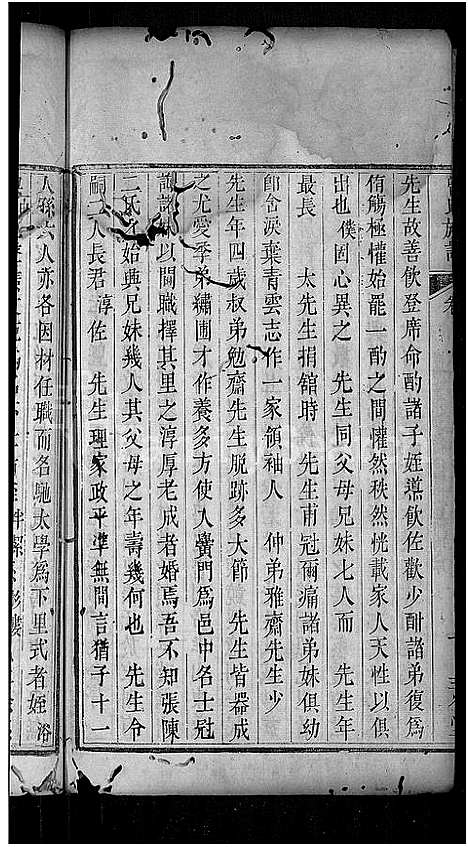 先生故善飲登席命酌諸子姪遵飲佐歡少酣諸弟復為
侑觴極懽始罷一酌之間懽然秩然恍載家人天性以俱
出也僕固心異之　先生同父母兄妹七人而　先生年
最長　太先生捐館時　先生甫冠爾痛諸弟妹俱幼
即含淚棄青雲志作一家領袖人　仲弟雅齋先生少
先生年四歲叔弟勉齋先生脫跡多大節　先生皆器成
之尤愛季弟繡圃才作養多方使入黌門為邑中名士冠
諸以閫職擇其里之淳厚老成者婚焉吾不知張陳
二氏之始與兄妹幾人其父母之年壽幾何也　先生令
嗣二人長君淳佐　先生理家政平準無間言猶子十一
人孫六人亦各因材任職而名馳太學為下里式者姪浴